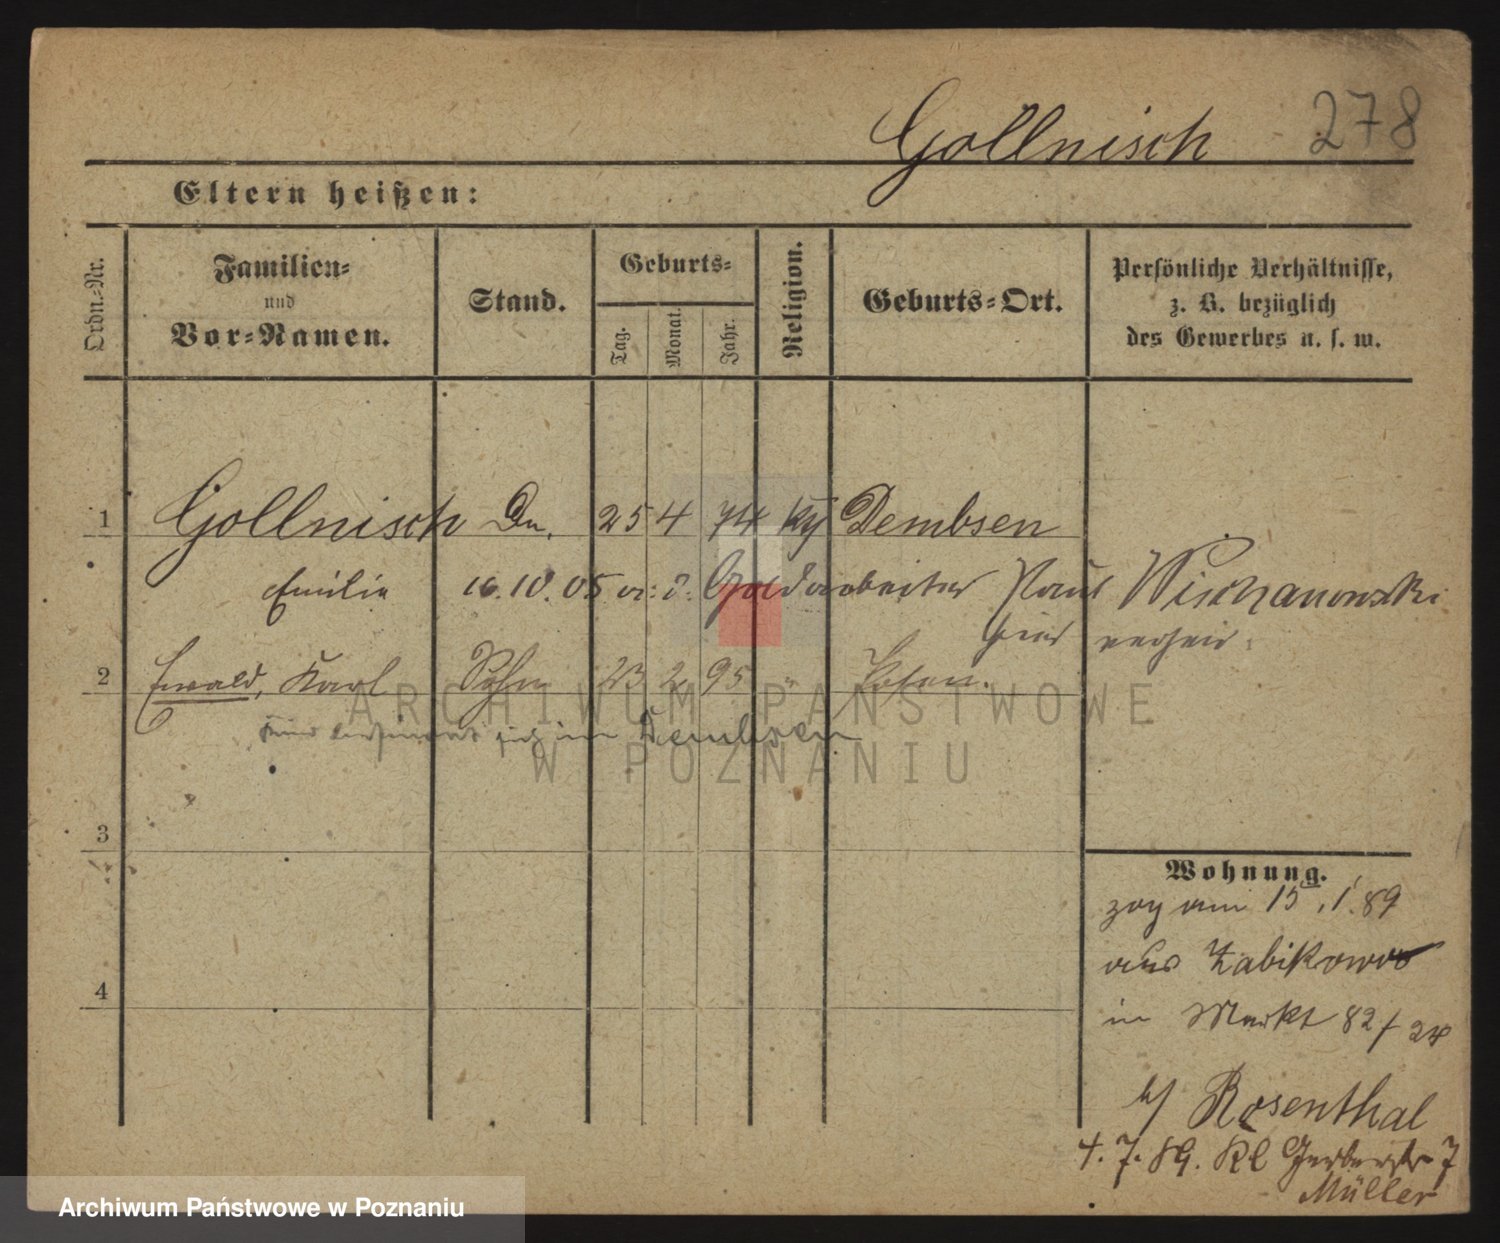 Gollnisch 278
Eltern heißen:
Ordn.-Nr.
Familien-
und
Vor-Namen.
Stand.
Geburts-
Tag. Monat. Jahr.
Religion.
Geburts-Ort.
Persönliche Verhältnisse,
z. B. bezüglich
des Gewerbes u. s. w.
1 Gollnisch Dn. 25 4 74 Dembsen
Emilie 16.10.05 Goldarbeiter Paul Wischanowski
hier
2 Ewald, Karl Sohn 23 2 95 " Posen.
sich in Dembsen
3
4
Wohnung.
zog am 15.1.89
aus Zabikowo
in Markt 82/
b/ Rosenthal
4.7.89. Kl Gerberstr 7
Müller
ARCHIWUM PAŃSTWOWE
W POZNANIU
Archiwum Państwowe w Poznaniu